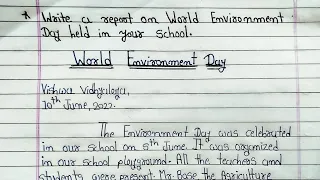 * Write a report on World Environment
Day held in your school.
World Environment Day
Vishwa Vidhyalaya,
10th June, 2022.
The Environment Day was celebrated
in our school on 5th June. It was organized
in our school playground. All the teachers and
students were present. Mr. Bose, the Agriculture